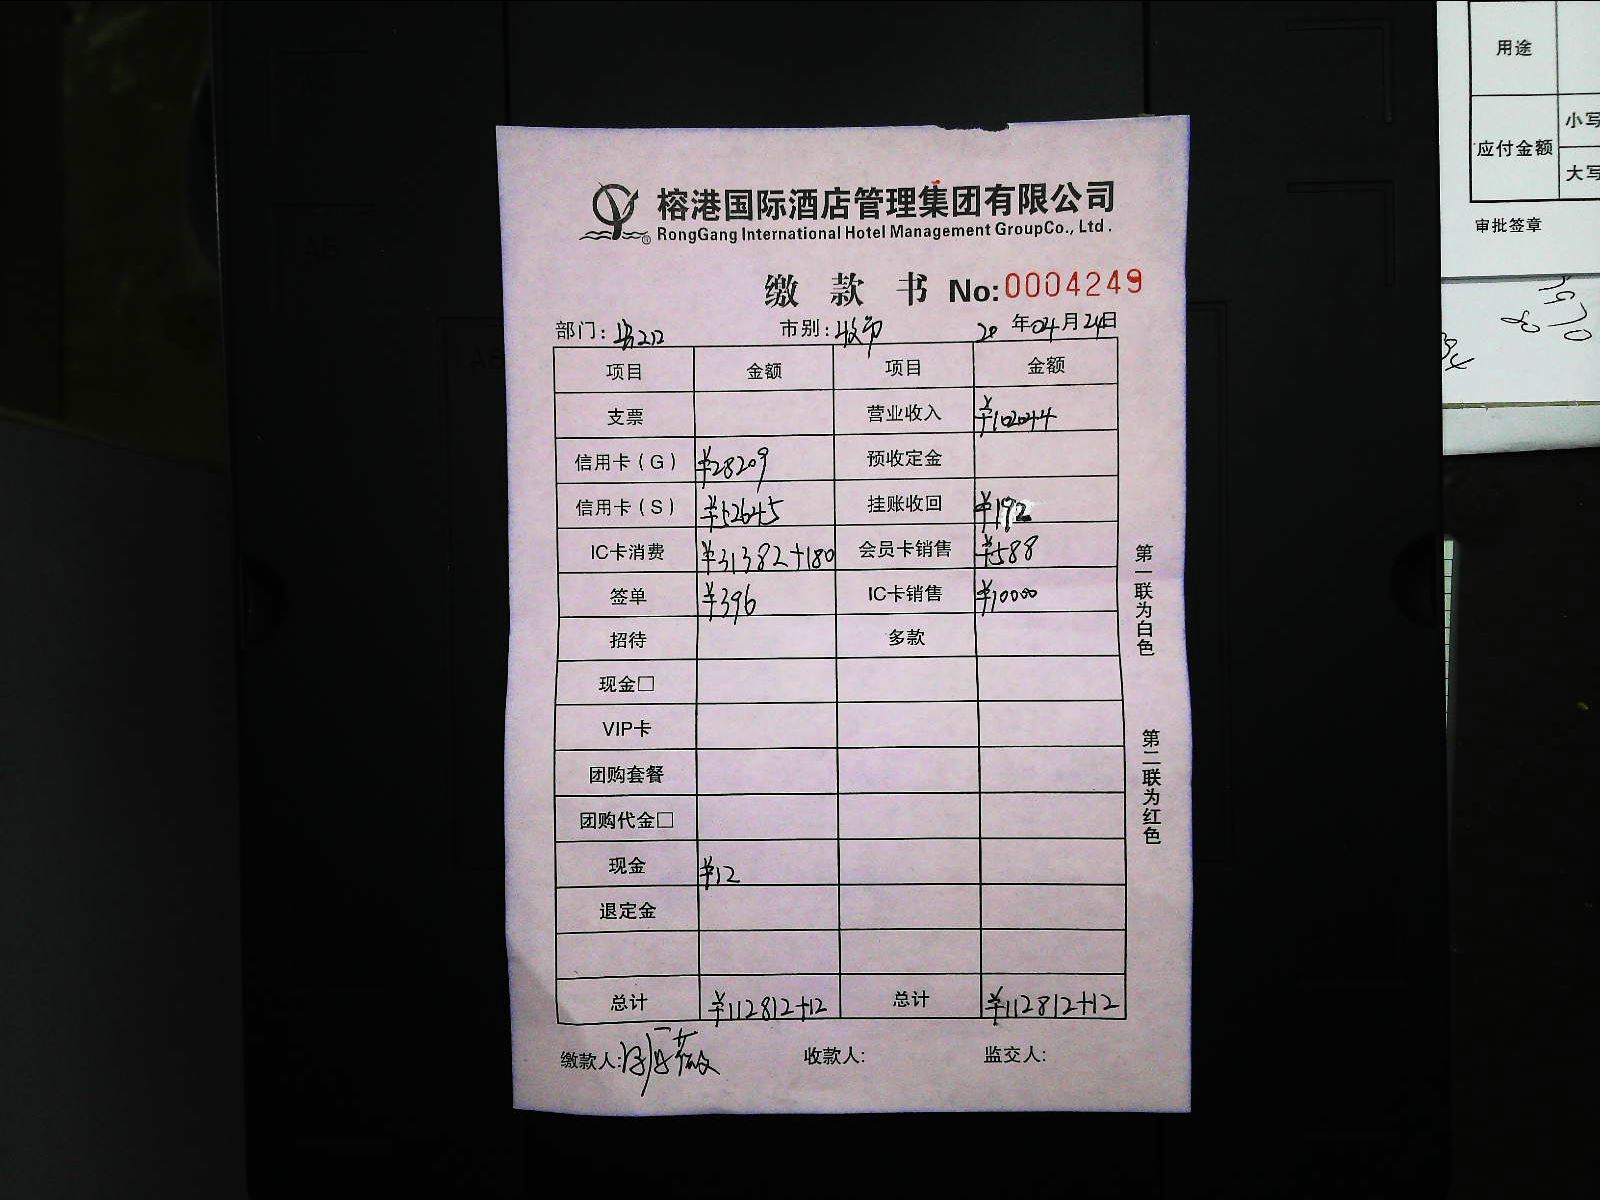 榕港国际酒店管理集团有限公司
RongGang International Hotel Management GroupCo., Ltd.
缴 款 书 No:0004249
部门: 市别:收市 20 年04月24日
项目 金额 项目 金额
支票 营业收入 ¥102044
信用卡(G) ¥28209 预收定金
信用卡(S) ¥52645 挂账收回 ¥192
IC卡消费 ¥31382+180 会员卡销售 ¥588
签单 ¥396 IC卡销售 ¥10000
招待 多款
现金□
VIP卡
团购套餐
团购代金□
现金 ¥12
退定金
总计 ¥112812+12 总计 ¥112812+12
缴款人: 收款人: 监交人:
第一联为白色
第二联为红色
用途
应付金额
小写
大写
审批签章